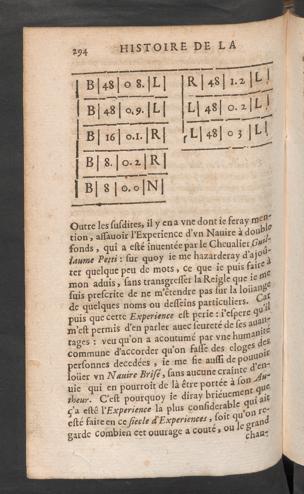 294 HISTOIRE DE LA
B| 48 | 0 8. | L
B| 48 | 0.9. | L
B| 16 | 0.1. | R
B| 8. | 0.2 | R
B| 8 | 0.0 | N
R | 48 | 1.2 | L
L | 48 | 0.2 | L
L | 48 | 0 3 | L
Outre les susdites, il y en a vne dont ie feray men-
tion, assauoir l'Experience d'vn Nauire à double
fonds, qui a esté inuentée par le Cheualier Guil-
laume Petti : sur quoy ie me hazarderay d'ajoû-
ter quelque peu de mots, ce que ie puis faire à
mon aduis, sans transgresser la Reigle que ie me
suis prescrite de ne m'étendre pas sur la loüange
de quelques noms ou desseins particuliers. Car
puis que cette Experience est perie : i'espere qu'il
m'est permis d'en parler auec seureté de ses auan-
tages : veu qu'on a acoutumé par vne humanité
commune d'accorder qu'on fasse des eloges des
personnes decedées, ie me sie aussi de pouuoir
loüer vn Nauire Brisé, sans aucune crainte d'en-
uie qui en pourroit de là être portée à son Au-
theur. C'est pourquoy ie diray briéuement que
ç'a esté l'Experience la plus considerable qui ait
esté faite en ce siecle d'Experiences, soit qu'on re-
garde combien cet ouurage a couté, ou le grand
chan-